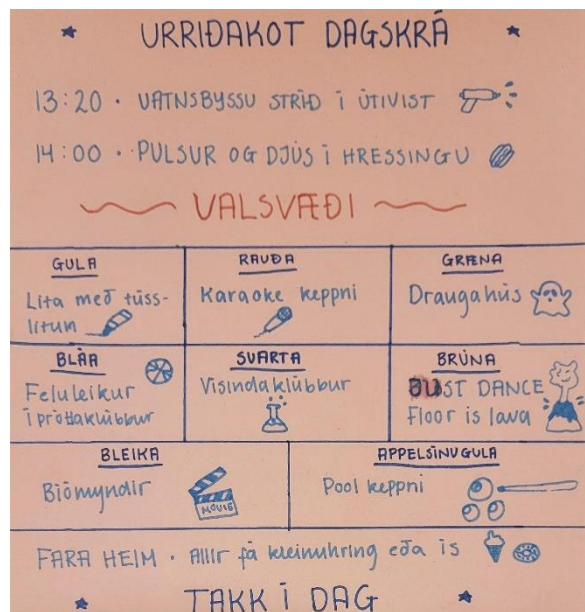 URRIÐAKOT DAGSKRÁ
13:20 · VATNSBYSSU STRÍÐ Í ÚTIVIST
14:00 · PULSUR OG DJÚS Í HRESSINGU
VALSVÆÐI
GULA
Lita með túss-
litun
RAUÐA
Karaoke keppni
GRÆNA
Draugahús
BLÁA
Feluleikur
íþróttaklúbbur
SVARTA
Vísindaklúbbur
BRÚNA
JUST DANCE
Floor is lava
BLEIKA
Bíómyndir
MOVIE
APPELSÍNUGULA
Pool keppni
FARA HEIM · Allir fá kleinuhring eða ís
TAKK Í DAG